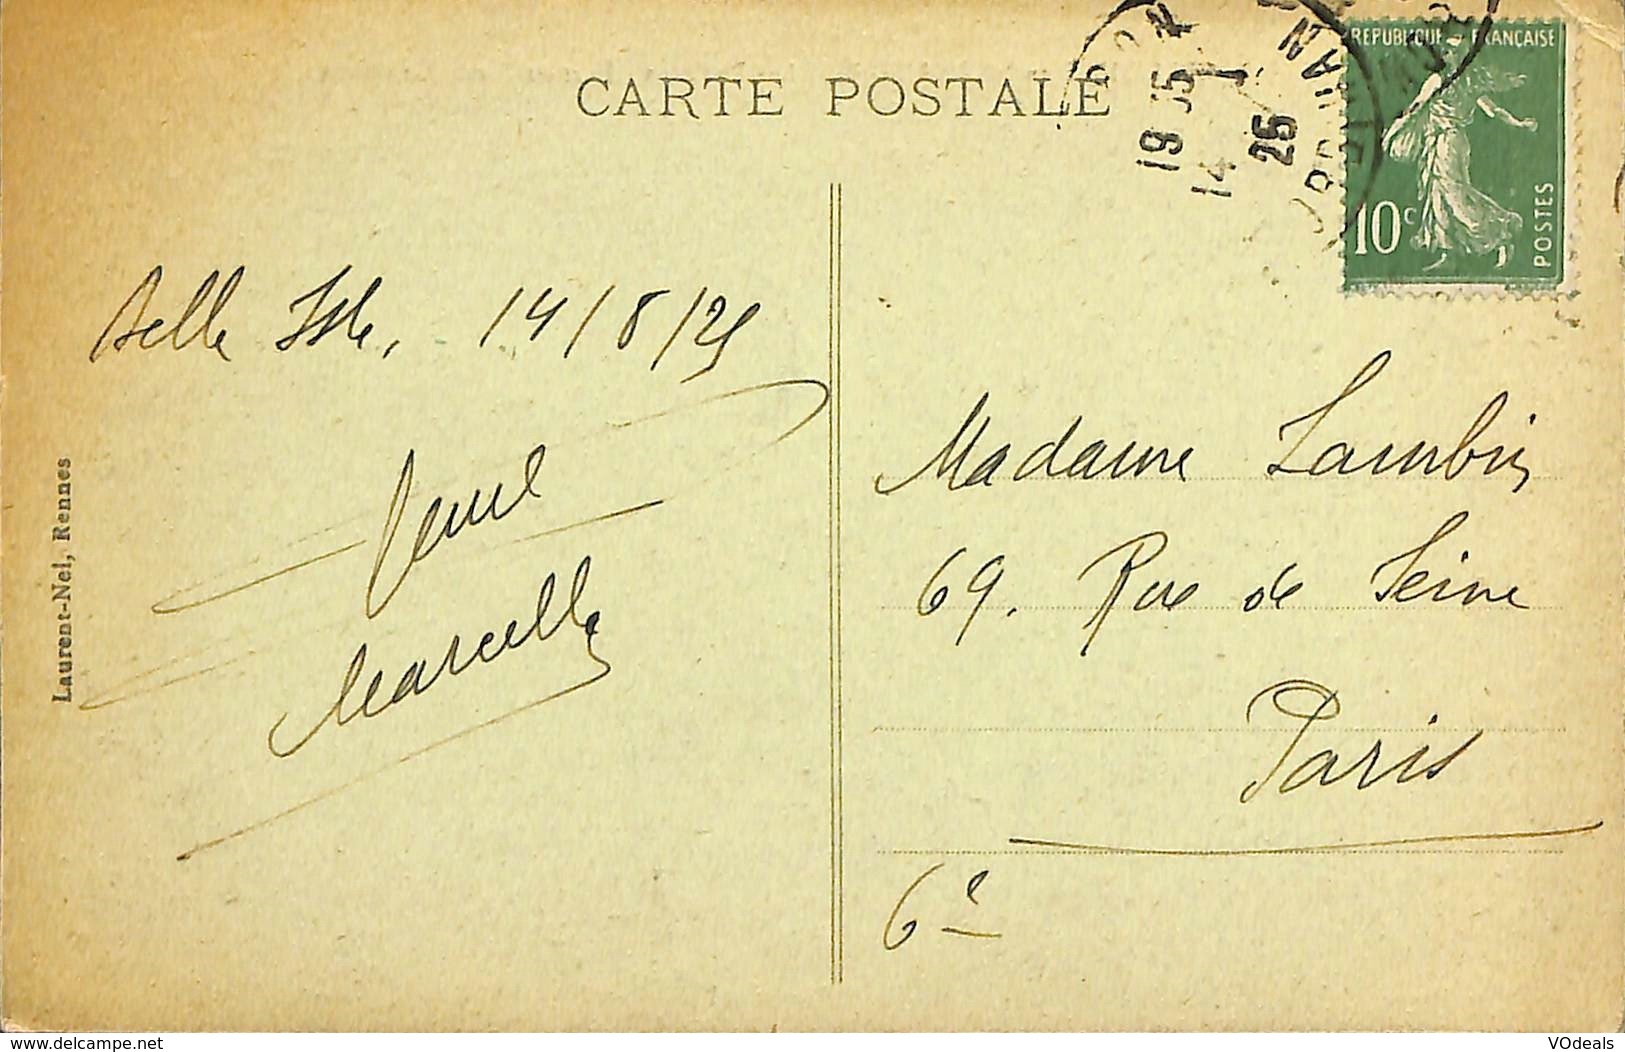 CARTE POSTALE
REPUBLIQUE FRANÇAISE
10c
POSTES
19 15
14
26
MORBIHAN
Belle Isle, 14/8/25
Marcelle
Laurent-Nel, Rennes
Madame Lambin
69. Rue de Seine
Paris
6e
delcampe.net
VOdeals